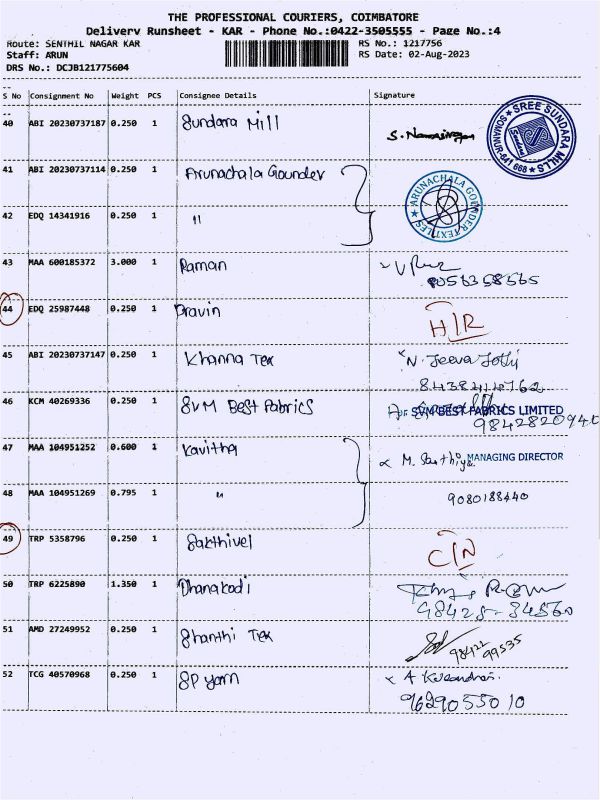 THE PROFESSIONAL COURIERS, COIMBATORE
Delivery Runsheet - KAR - Phone No.:0422-3505555 - Page No.:4
Route: SENTHIL NAGAR KAR RS No.: 1217756
Staff: ARUN RS Date: 02-Aug-2023
DRS No.: DCJB121775604
S No Consignment No Weight PCS Consignee Details Signature
40 ABI 20230737187 0.250 1 Sundara Mill
SREE SUNDARA MILLS
SOMANUR-641 668
Sundara
41 ABI 20230737114 0.250 1 Arunachala Gounder
ARUNACHALA GOUNDER TEXTILES
42 EDQ 14341916 0.250 1 "
43 MAA 600185372 3.000 1 Raman
44 EDQ 25987448 0.250 1 Pravin H/R
45 ABI 20230737147 0.250 1 Khanna Tex N. Jeeva Jothi
8438414762
46 KCM 40269336 0.250 1 SVM Best Fabrics For SVM BEST FABRICS LIMITED
47 MAA 104951252 0.600 1 Kavitha M. MANAGING DIRECTOR
48 MAA 104951269 0.795 1 " 9080188440
49 TRP 5358796 0.250 1 Sakthivel C/N
50 TRP 6225890 1.350 1 Dhanakodi
98428-34560
51 AMD 27249952 0.250 1 Shanthi Tex 98421 99535
52 TCG 40570968 0.250 1 SP yarn A
9629055010